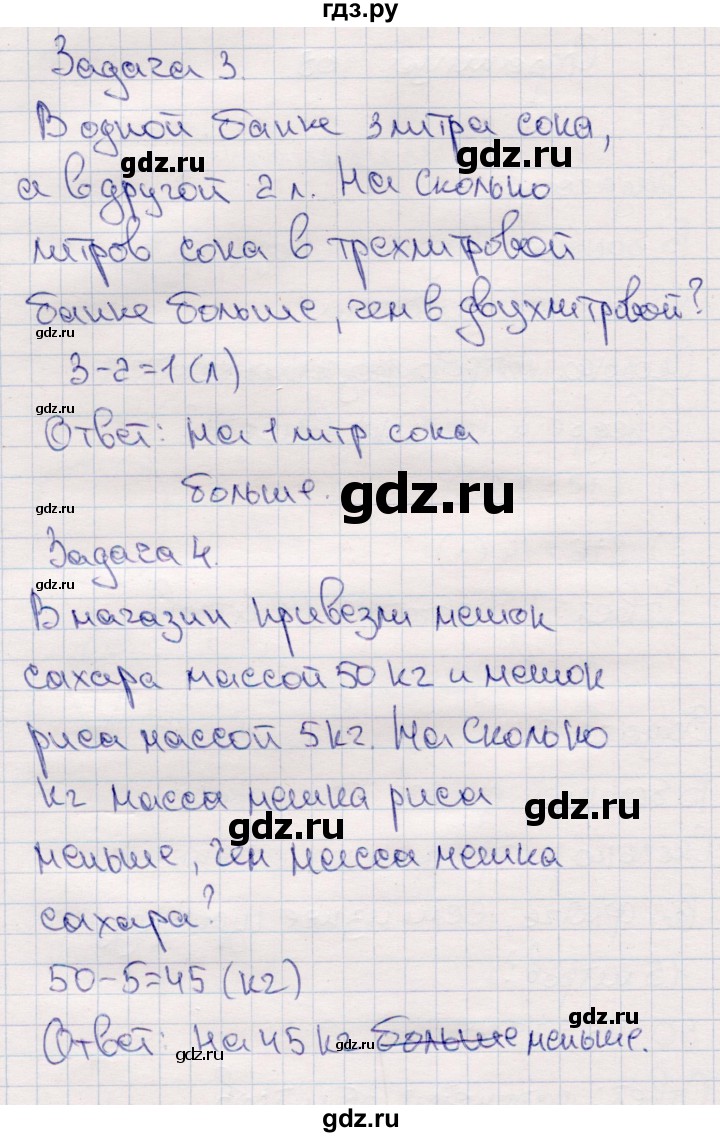 гдз.ру
Задача 3.
В одной банке 3 литра сока,
gdz.ru
gdz.ru
а в другой 2 л. На сколько
литров сока в трехлитровой
gdz.ru
gdz.ru
банке больше, чем в двухлитровой?
gdz.ru
3-2=1 (л)
gdz.ru
Ответ: на 1 литр сока
больше.
gdz.ru
gdz.ru
Задача 4.
gdz.ru
В магазин привезли мешок
gdz.ru
gdz.ru
сахара массой 50 кг и мешок
риса массой 5 кг. На сколько
кг масса мешка риса
gdz.ru
gdz.ru
меньше, чем масса мешка
сахара?
50-5=45 (кг)
gdz.ru
Ответ: на 45 кг больше меньше.
gdz.ru
gdz.ru
gdz.ru